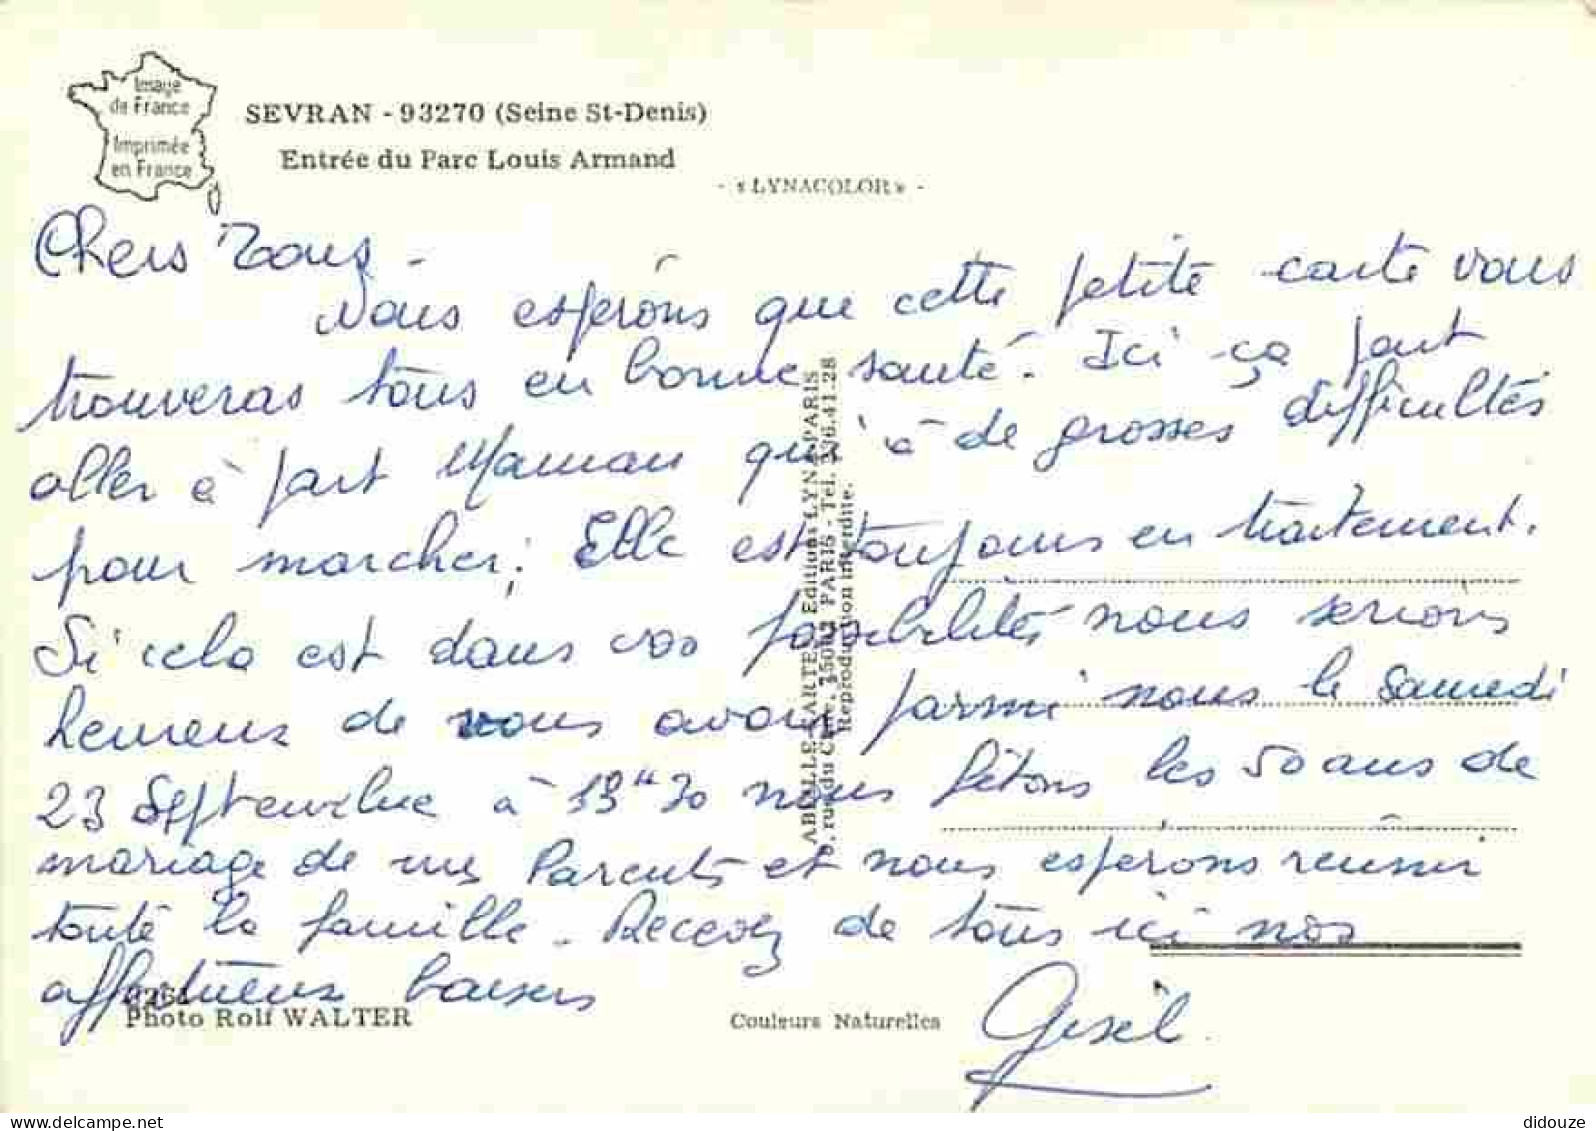 Image
de France
Imprimée
en France
SEVRAN - 93270 (Seine St-Denis)
Entrée du Parc Louis Armand
- « LYNACOLOR » -
Chers Tous -
Nous espérons que cette petite carte vous
trouveras tous en bonne santé. Ici ça peut
aller à part Maman qui à de grosses difficultés
pour marcher; Elle est toujours en traitement.
Si cela est dans vos possibilités nous serions
heureux de vous avoir parmi nous le Samedi
23 Septembre à 19H30 nous fêtons les 50 ans de
mariage de mes Parents et nous esperons réunir
toute la famille - Recevez de tous ici nos
affectueux baisers
Gisèl
ABEILLE-CARTES Editions LYNA-PARIS
rue du PARIS - Tél. 236.41.28
Reproduction interdite.
Photo Rolf WALTER
Couleurs Naturelles
delcampe.net
didouze